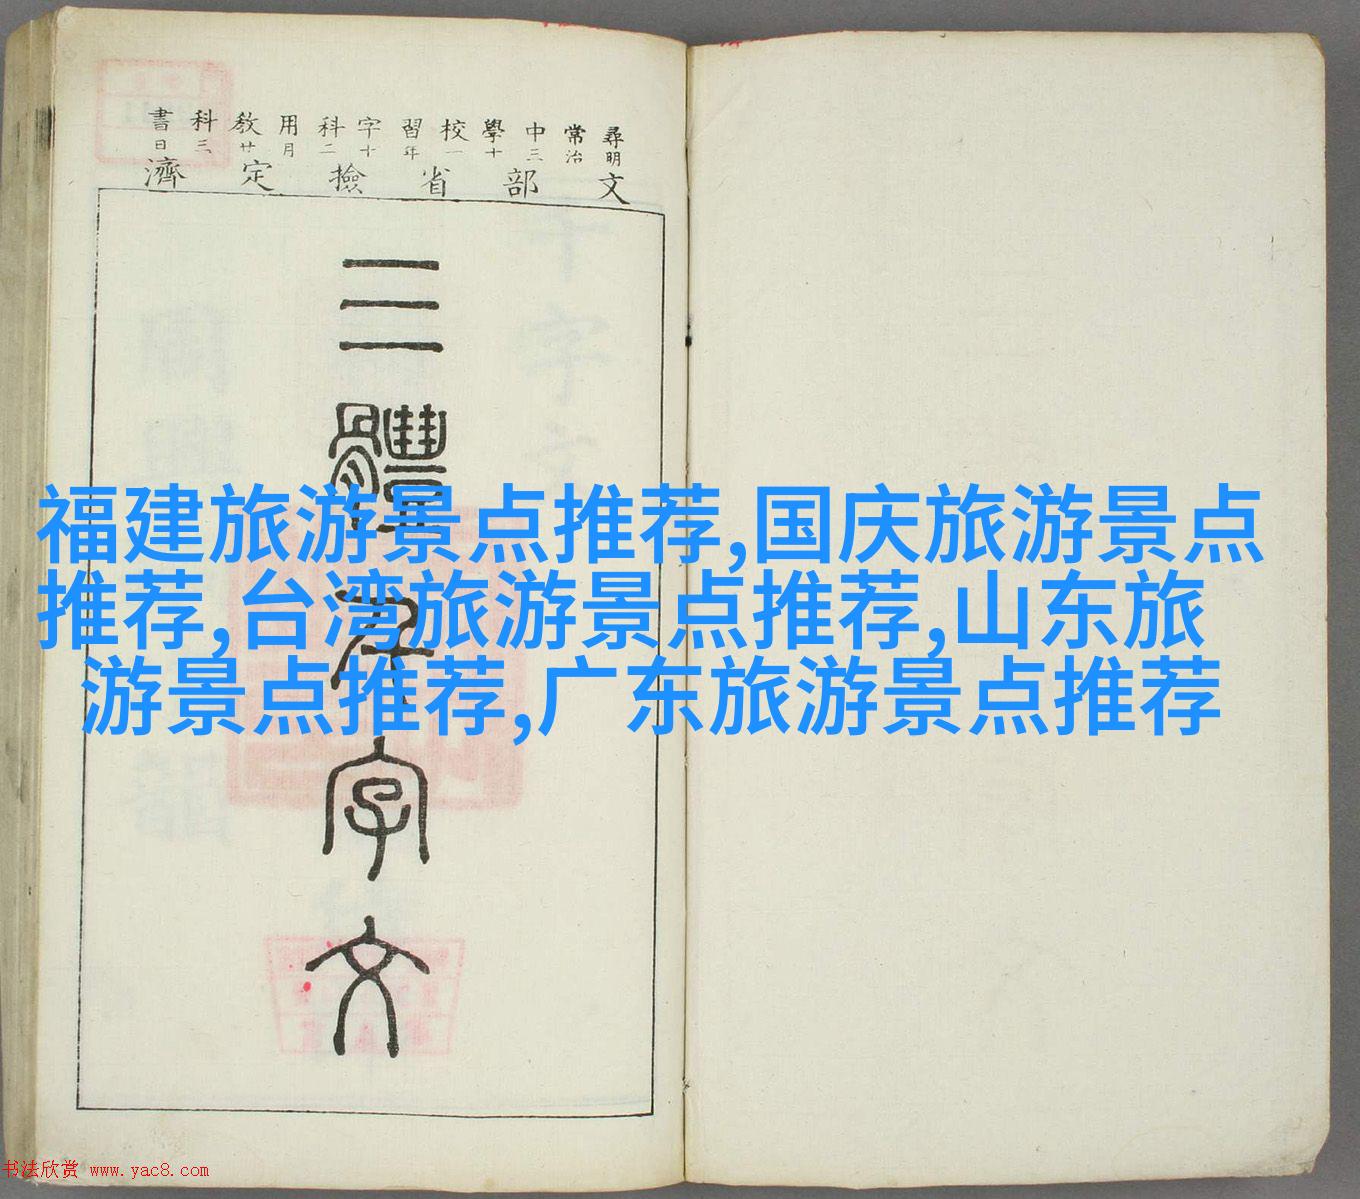 文部省檢定濟
尋常中學校習字科用教科書
明治三十一年十二月廿三日
三體千字文
福建旅游景点推荐,国庆旅游景点
推荐,台湾旅游景点推荐,山东旅
游景点推荐,广东旅游景点推荐
书法欣赏 www.yac8.com